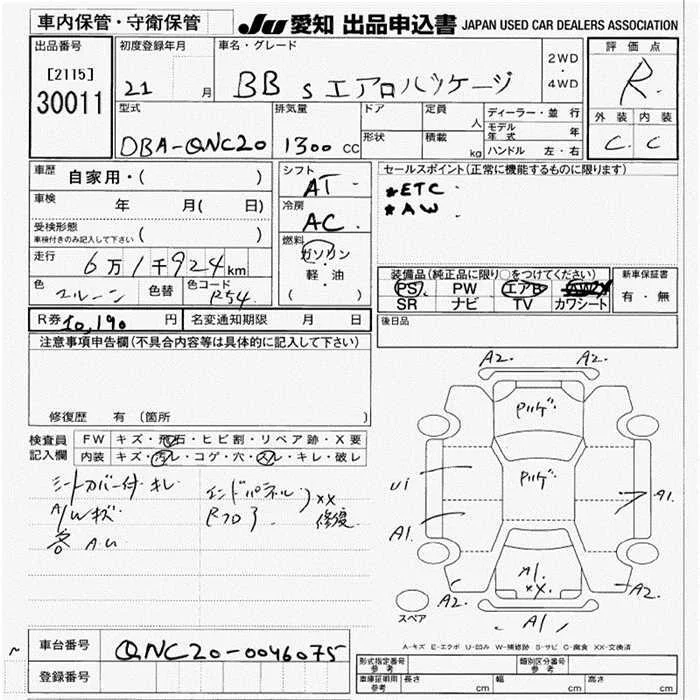 車内保管・守衛保管
JU 愛知 出品申込書 JAPAN USED CAR DEALERS ASSOCIATION
出品番号
[2115]
30011
初度登録年月
21 月
車名・グレード
BB S エアロパッケージ
2WD
・
4WD
評価点
R
外装 内装
C C
型式
DBA-QNC20
排気量
1300 CC
ドア
形状
定員
人
積載
kg
ディーラー・並行
モデル年式 年
ハンドル 左・右
車歴
自家用・( )
車検
年 月( 日)
受検形態
車検付きのみ記入して下さい ( )
走行
6万1千924km
色
色替
色コード
R54
シフト
AT
冷房
AC
燃料
ガソリン
・
軽・油
( )
セールスポイント(正常に機能するものに限ります)
★ETC
★AW
装備品(純正品に限り○をつけてください)
PS PW エアB AW
SR ナビ TV カワシート
新車保証書
有・無
R券 10,190 円
名変通知期限 月 日
後日品
注意事項申告欄(不具合内容等は具体的に記入して下さい)
修復歴 有(箇所 )
検査員
記入欄
FW キズ・飛石・ヒビ割・リペア跡・X要
内装 キズ・汚レ・コゲ・穴・スレ・キレ・破レ
シートカバー付・キレ
A/Wキズ
各 AU
エンドパネル
Rフロア
XX
修復
A2. A2.
Pハゲ・
Pハゲ・
U1
A1.
A1.
A1.
XX.
A2.
A2.
A1
スペア
A-キズ E-エクボ U-凹み W-補修跡 S-サビ C-腐食 XX-交換済
車台番号
QNC20-0046075
登録番号
型式指定番号
参考
類別区分番号
参考
車庫証明用
参考
長さ cm
幅 cm
高さ cm